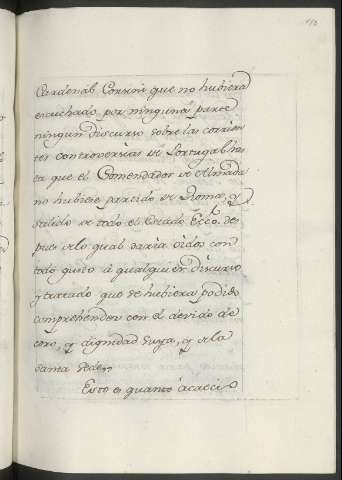 Cardenal Corsini que no hubiera
escuchado por ninguna parte
ningun discurso sobre las corrien
tes controversias de Portugal has
ta que el Comendador de Almada
no hubiese partido de Roma, y
salido de todo el Estado Ecc.o des
pues de lo qual daria oidos con
todo gusto à qualquier discurso
y tratado que se hubiera podido
comprehender con el devido de
coro, y dignidad suya, y de la
santa sede,,
Esto es quanto acaeció